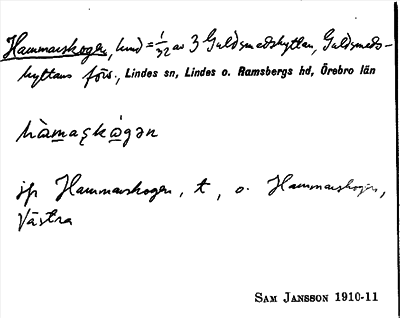 Hammarskogen, lund = 1/32 av 3 Guldsmedshyttan, Guldsmeds-
hyttans förs., Lindes sn, Lindes o. Ramsbergs hd, Örebro län
hàmaʂkógən
jfr Hammarskogen, t, o. Hammarskogen,
Västra
SAM JANSSON 1910-11